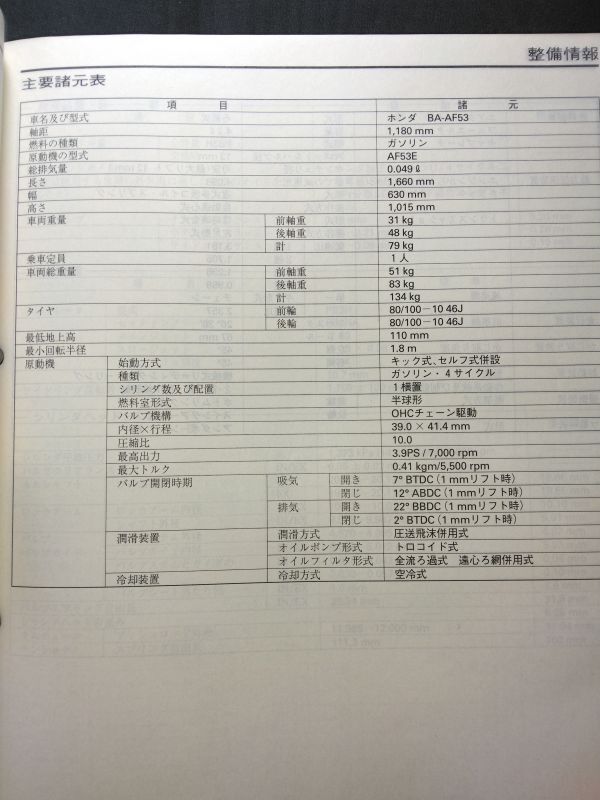 整備情報
主要諸元表
項 目 諸 元
車名及び型式 ホンダ BA-AF53
軸距 1,180 mm
燃料の種類 ガソリン
原動機の型式 AF53E
総排気量 0.049 ℓ
長さ 1,660 mm
幅 630 mm
高さ 1,015 mm
車両重量 前軸重 31 kg
後軸重 48 kg
計 79 kg
乗車定員 1人
車両総重量 前軸重 51 kg
後軸重 83 kg
計 134 kg
タイヤ 前輪 80/100－10 46J
後輪 80/100－10 46J
最低地上高 110 mm
最小回転半径 1.8 m
原動機 始動方式 キック式、セルフ式併設
種類 ガソリン・4サイクル
シリンダ数及び配置 1横置
燃料室形式 半球形
バルブ機構 OHCチェーン駆動
内径×行程 39.0 × 41.4 mm
圧縮比 10.0
最高出力 3.9PS / 7,000 rpm
最大トルク 0.41 kgm/5,500 rpm
バルブ開閉時期 吸気 開き 7° BTDC（1 mmリフト時）
閉じ 12° ABDC（1 mmリフト時）
排気 開き 22° BBDC（1 mmリフト時）
閉じ 2° BTDC（1 mmリフト時）
潤滑装置 潤滑方式 圧送飛沫併用式
オイルポンプ形式 トロコイド式
オイルフィルタ形式 全流ろ過式 遠心ろ網併用式
冷却装置 冷却方式 空冷式